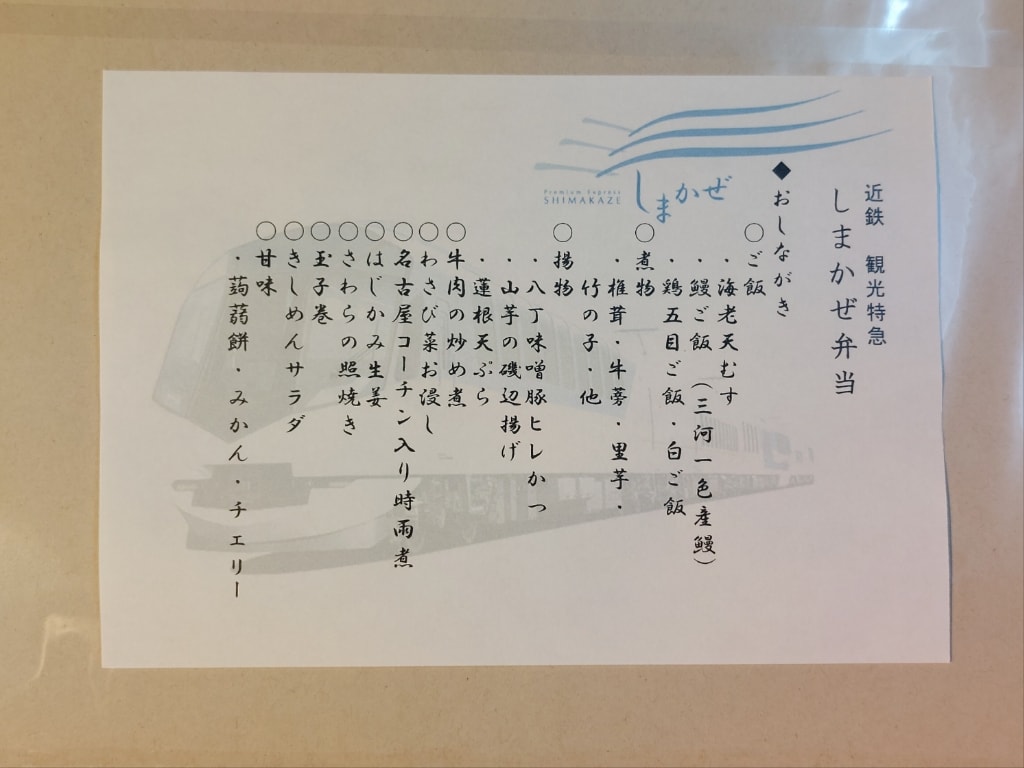 近鉄 観光特急
しまかぜ弁当
Premium Express
SHIMAKAZE
しまかぜ
◆おしながき
○ご飯
・海老天むす
・鰻ご飯(三河一色産鰻)
・鶏五目ご飯・白ご飯
○煮物
・椎茸・牛蒡・里芋・
竹の子・他
○揚物
・八丁味噌豚ヒレかつ
・山芋の磯辺揚げ
・蓮根天ぷら
○牛肉の炒め煮
○わさび菜お浸し
○名古屋コーチン入り時雨煮
○はじかみ生姜
○さわらの照焼き
○玉子巻
○きしめんサラダ
○甘味
・蒟蒻餅・みかん・チェリー